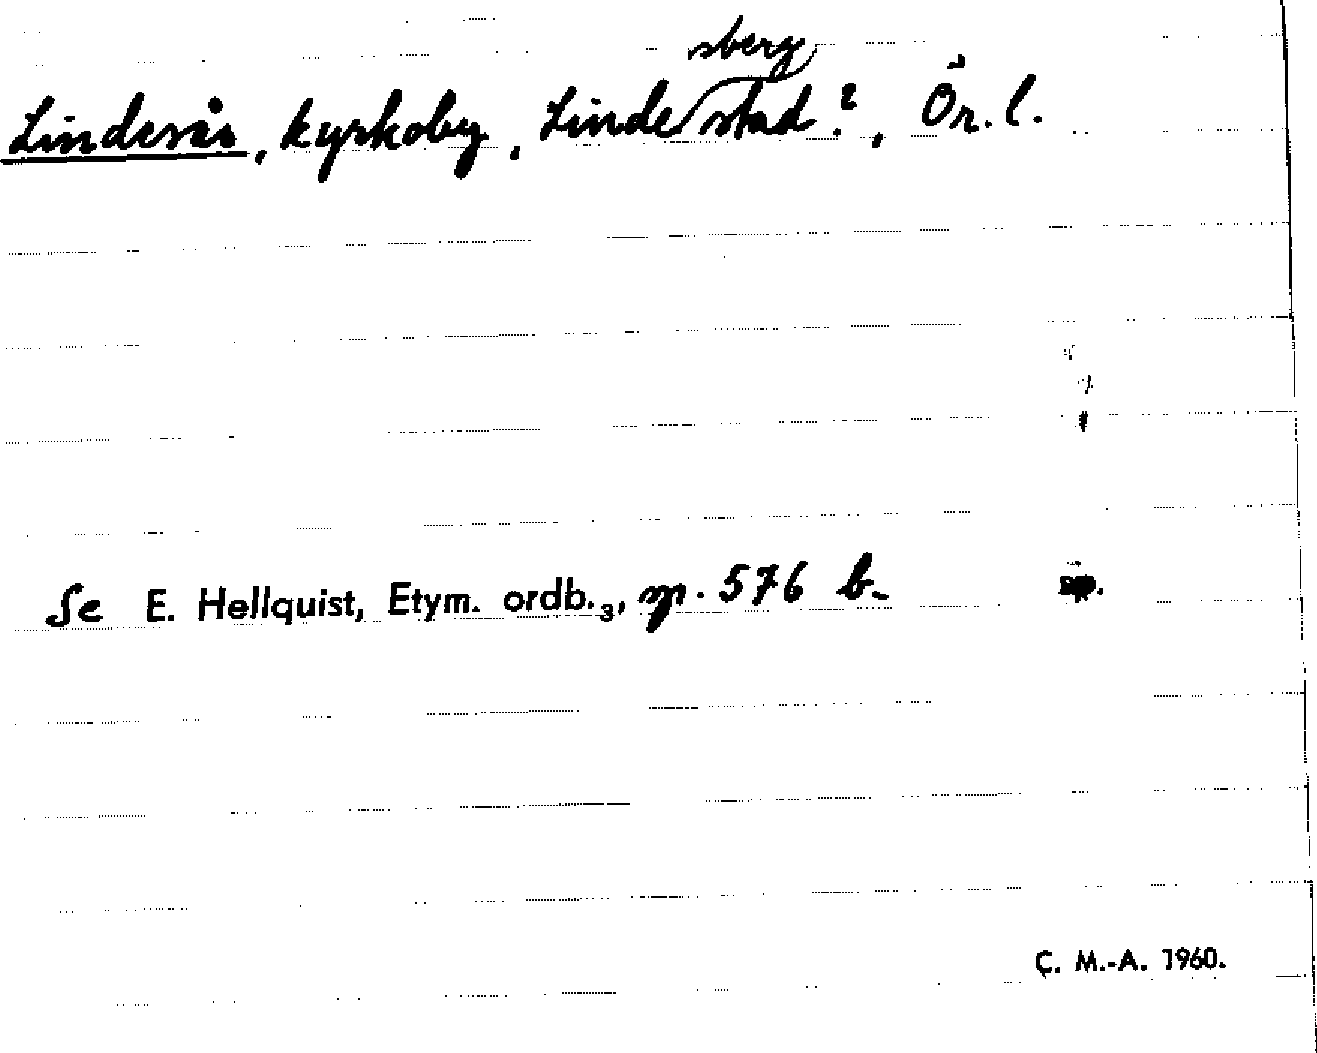 sberg
Lindesås, kyrkoby, Linde stad?, Ör. l.
Se E. Hellquist, Etym. ordb.3, p. 576 b.
C. M.-A. 1960.